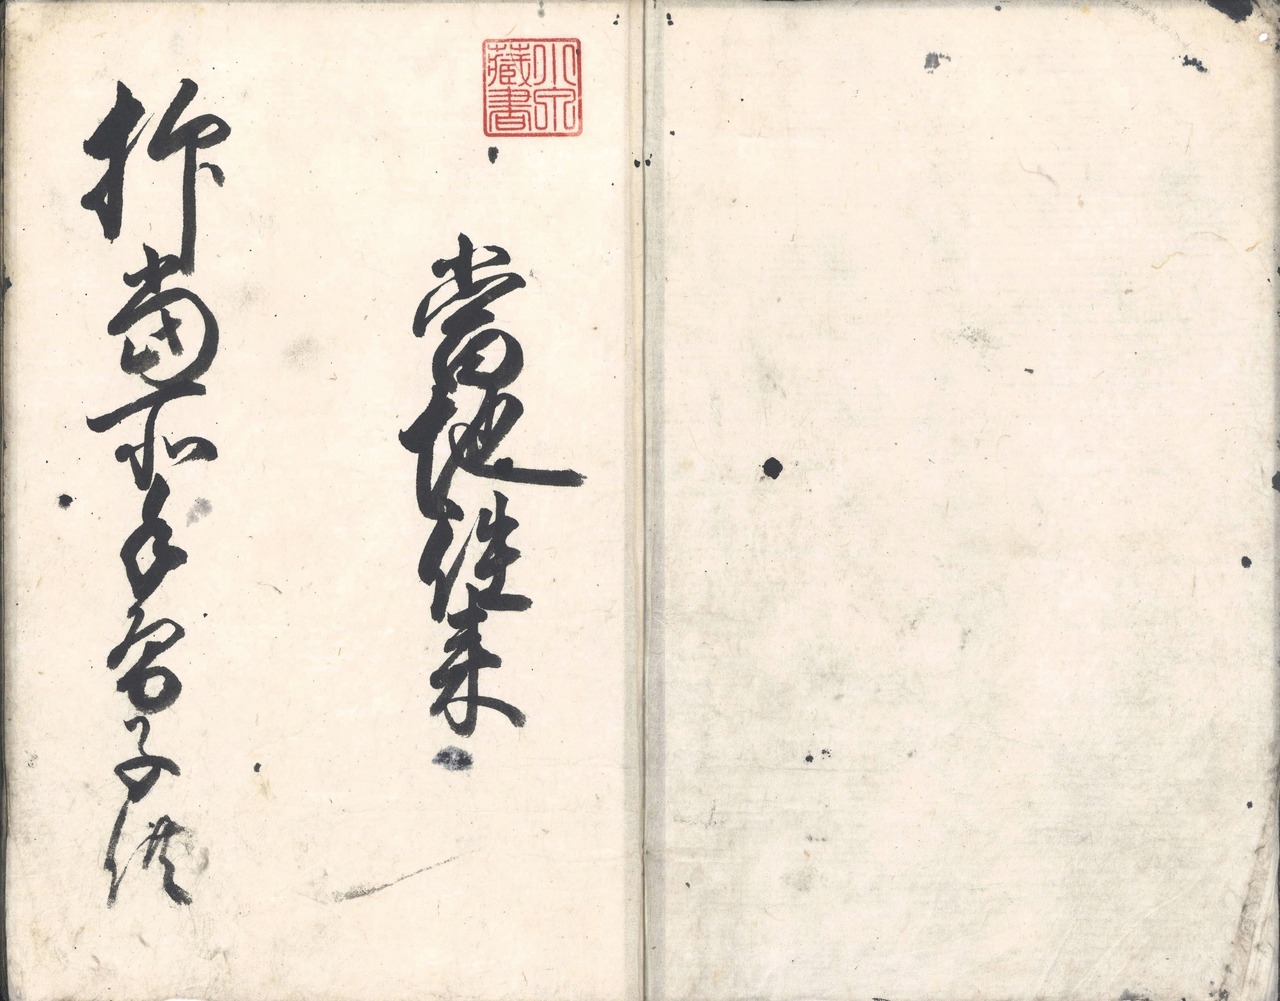 小泉
藏書
當地徃来
抑當所手習子供